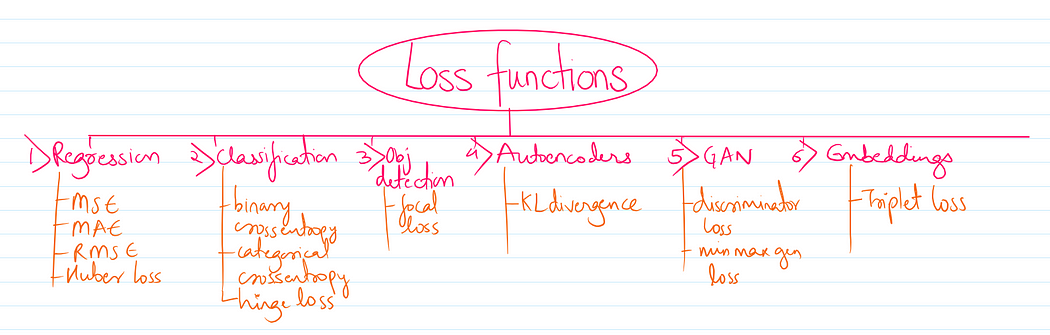 Loss functions
1) Regression
MSE
MAE
RMSE
Huber loss
2) Classification
binary
crossentropy
categorical
crossentropy
hinge loss
3) Obj
detection
focal
loss
4) Autoencoders
KL divergence
5) GAN
discriminator
loss
minmax gen
loss
6) Embeddings
Triplet loss